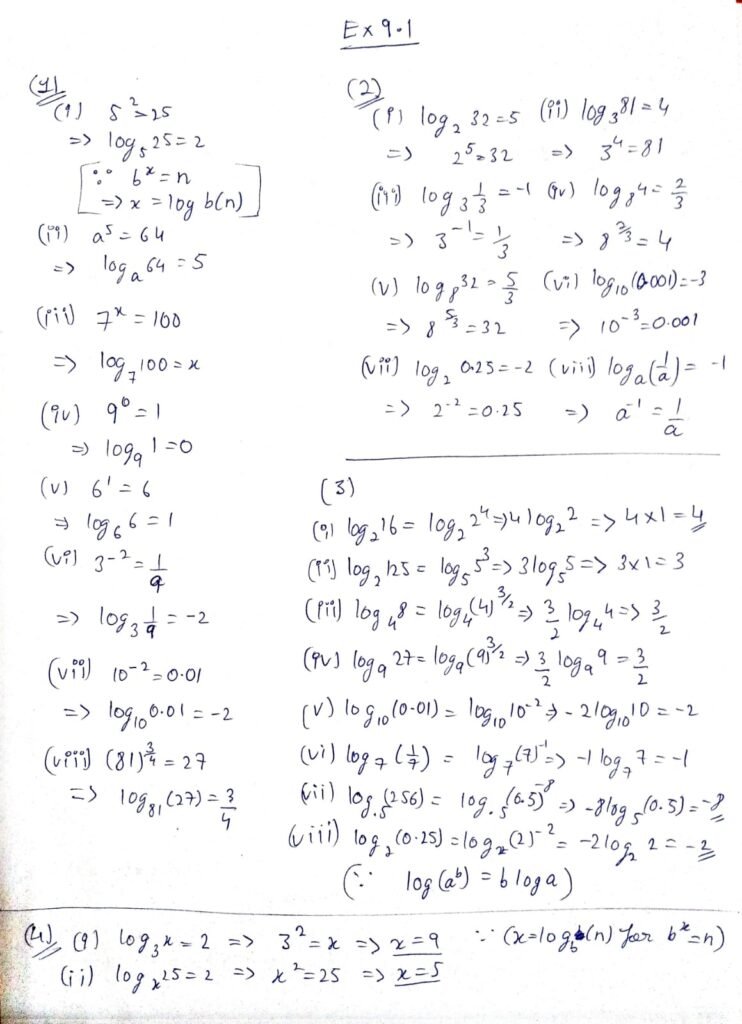 Ex 9.1
(1)
(i) 5² = 25
=> log₅ 25 = 2
[∵ bˣ = n
=> x = log b(n)]
(ii) a⁵ = 64
=> logₐ 64 = 5
(iii) 7ˣ = 100
=> log₇ 100 = x
(iv) 9⁰ = 1
=> log₉ 1 = 0
(v) 6¹ = 6
=> log₆ 6 = 1
(vi) 3⁻² = 1/9
=> log₃ 1/9 = -2
(vii) 10⁻² = 0.01
=> log₁₀ 0.01 = -2
(viii) (81)^(3/4) = 27
=> log₈₁ (27) = 3/4
(2)
(i) log₂ 32 = 5 (ii) log₃ 81 = 4
=> 2⁵ = 32 => 3⁴ = 81
(iii) log₃ 1/3 = -1 (iv) log₈ 4 = 2/3
=> 3⁻¹ = 1/3 => 8^(2/3) = 4
(v) log₈ 32 = 5/3 (vi) log₁₀ (0.001) = -3
=> 8^(5/3) = 32 => 10⁻³ = 0.001
(vii) log₂ 0.25 = -2 (viii) logₐ (1/a) = -1
=> 2⁻² = 0.25 => a⁻¹ = 1/a
(3)
(i) log₂ 16 = log₂ 2⁴ => 4 log₂ 2 => 4×1 = 4
(ii) log₂ 125 = log₅ 5³ => 3 log₅ 5 => 3×1 = 3
(iii) log₄ 8 = log₄ (4)^(3/2) => 3/2 log₄ 4 => 3/2
(iv) log₉ 27 = log₉ (9)^(3/2) => 3/2 log₉ 9 = 3/2
(v) log₁₀ (0.01) = log₁₀ 10⁻² => -2 log₁₀ 10 = -2
(vi) log₇ (1/7) = log₇ (7)⁻¹ => -1 log₇ 7 = -1
(vii) log.₅ (256) = log.₅ (0.5)⁻⁸ => -8 log.₅ (0.5) = -8
(viii) log₂ (0.25) = log₂ (2)⁻² = -2 log₂ 2 = -2
(∵ log (aᵇ) = b log a)
(4) (i) log₃ x = 2 => 3² = x => x = 9 ∵ (x = log_b (n) for bˣ = n)
(ii) logₓ 25 = 2 => x² = 25 => x = 5